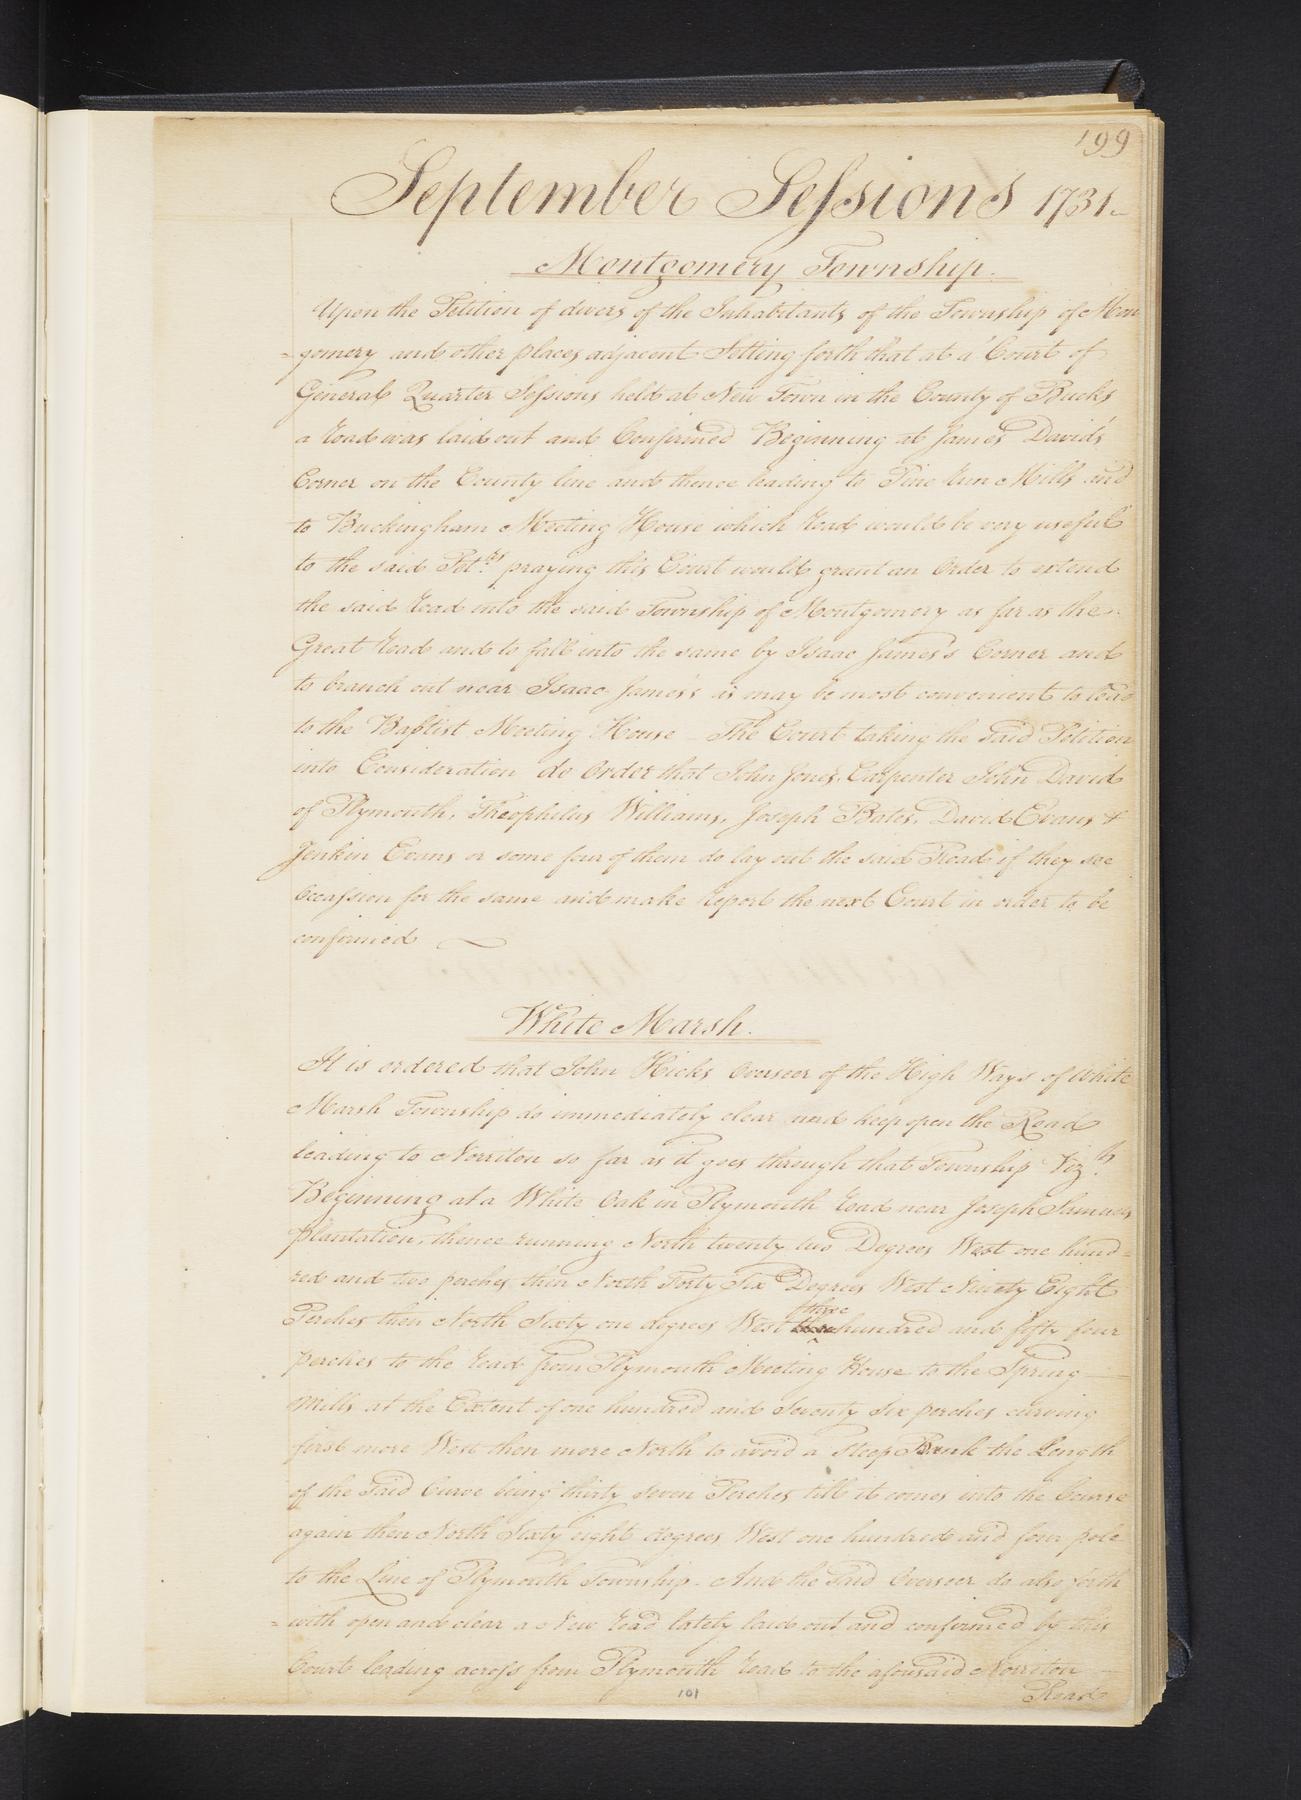 199
September Sessions 1731
Montgomery Township.
Upon the Petition of divers of the Inhabitants of the Township of Mon
=gomery and other places adjacent Setting forth that at a Court of
General Quarter Sessions held at New Town in the County of Bucks
a road was laid out and Confirmed Beginning at James David's
Corner on the County line and thence leading to Pine Run Mills and
to Buckingham Meeting House which road would be very useful
to the said Pet.rs praying this Court would grant an Order to extend
the said road into the said Township of Montgomery as far as the
Great road and to fall into the same by Isaac James's Corner and
to branch out near Isaac James's as may be most convenient to lead
to the Baptist Meeting House - The Court taking the said Petition
into Consideration do Order that John Jones, Carpenter John David
of Plymouth, Theophilus Williams, Joseph Bates, David Evans &
Jenkin Evans or some four of them do lay out the said Road if they see
Occassion for the same and make report the next Court in order to be
confirmed
White Marsh.
It is ordered that John Hicks Overseer of the High Ways of White
Marsh Township do immediately clear and keep open the Road
leading to Norriton so far as it goes through that Township Viz.ts
Beginning at a White Oak in Plymouth road near Joseph Samuels
plantation, thence running North twenty two Degrees West one hund=
red and two perches then North Forty Six Degrees West Ninety Eight
Perches then North Sixty one degrees West three hundred and fifty four
perches to the road from Plymouth Meeting House to the Spring
Mills at the Extent of one hundred and Seventy Six perches curving
first more West then more North to avoid a steep Bank the Length
of the said Curve being thirty seven Perches till it comes into the Course
again then North Sixty eight degrees West one hundred and four pole
to the Line of Plymouth Township - And the said Overseer do also forth
=with open and clear a New road lately laid out and confirmed by this
Court leading across from Plymouth road to the aforesaid Norriton
Road
101